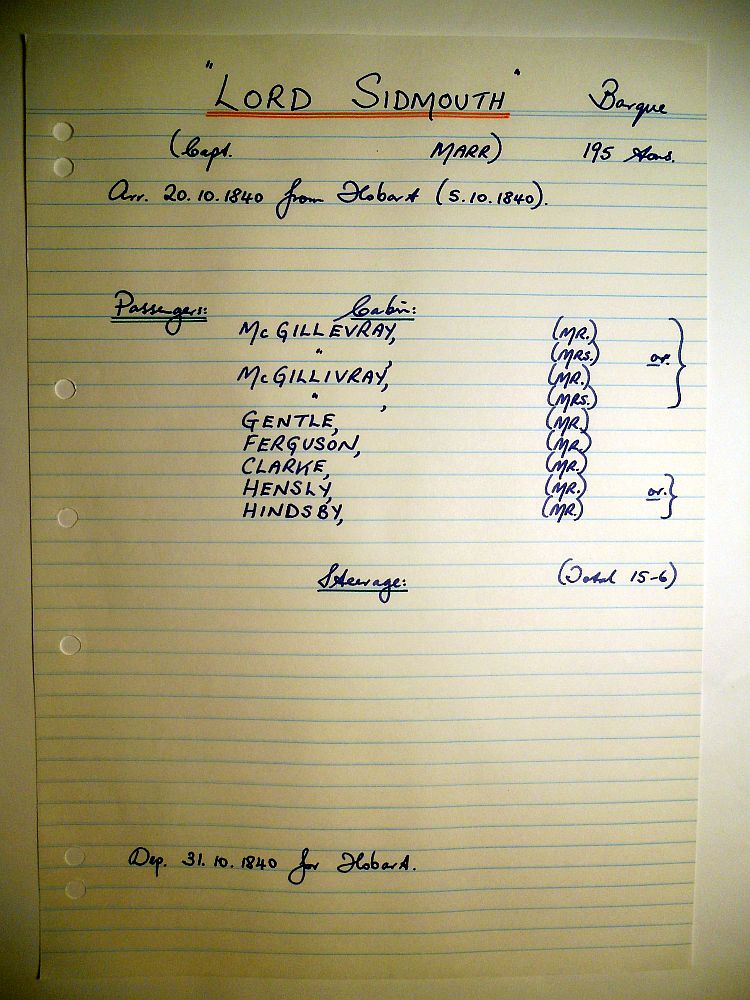 "LORD SIDMOUTH" Barque
(Capt. MARR) 195 tons.
Arr. 20.10.1840 from Hobart (5.10.1840).
Passengers: Cabin:
McGILLEVRAY, (MR.)
" , (MRS.) or.
McGILLIVRAY, (MR.)
" , (MRS.)
GENTLE, (MR.)
FERGUSON, (MR.)
CLARKE, (MR.)
HENSLY, (MR.) or.
HINDSBY, (MR.)
Steerage: (Total 15-6)
Dep. 31.10.1840 for Hobart.